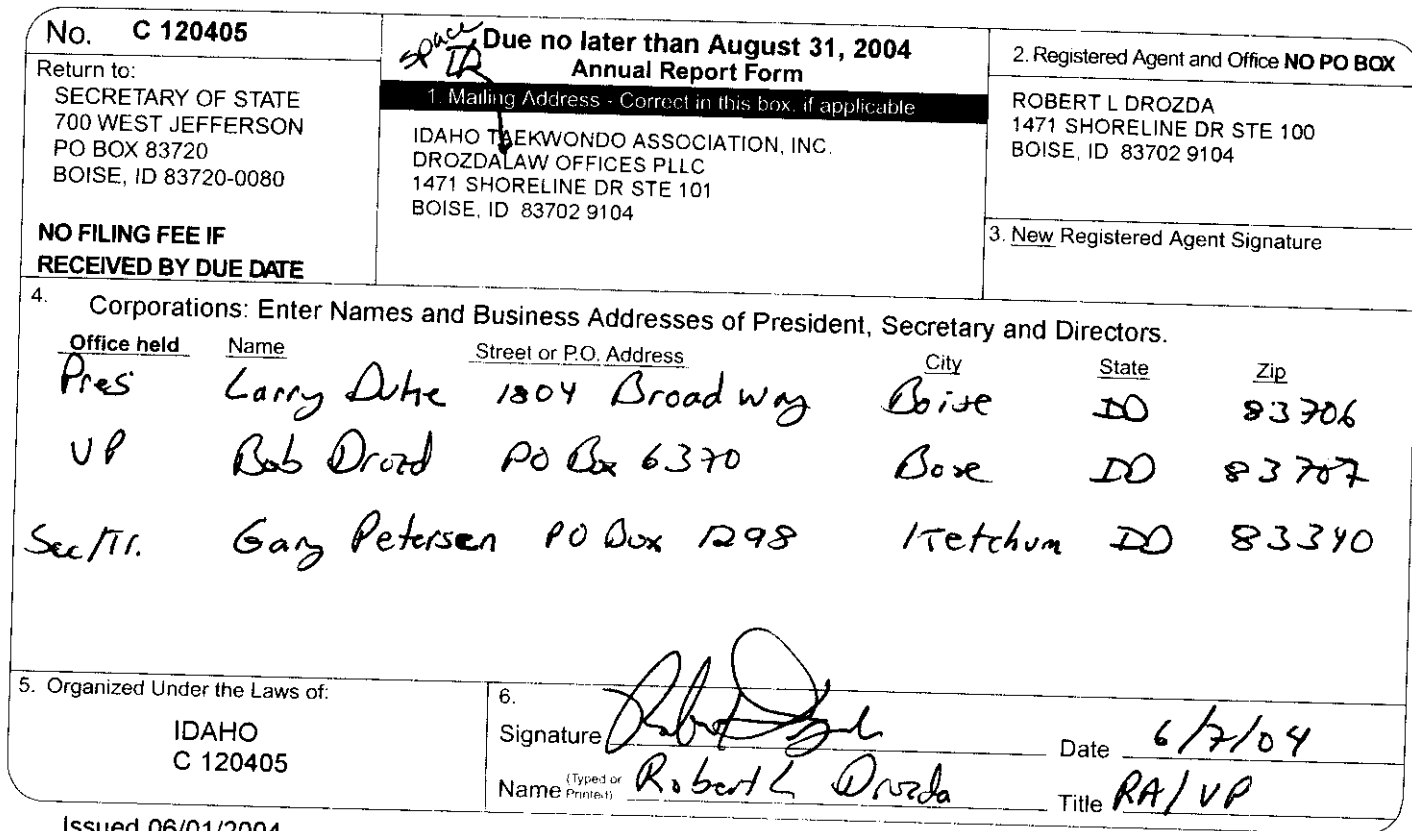 No. C 120405
Return to:
SECRETARY OF STATE
700 WEST JEFFERSON
PO BOX 83720
BOISE, ID 83720-0080
NO FILING FEE IF
RECEIVED BY DUE DATE
space
Due no later than August 31, 2004
Annual Report Form
1. Mailing Address - Correct in this box, if applicable
IDAHO TAEKWONDO ASSOCIATION, INC.
DROZDALAW OFFICES PLLC
1471 SHORELINE DR STE 101
BOISE, ID 83702 9104
2. Registered Agent and Office NO PO BOX
ROBERT L DROZDA
1471 SHORELINE DR STE 100
BOISE, ID 83702 9104
3. New Registered Agent Signature
4. Corporations: Enter Names and Business Addresses of President, Secretary and Directors.
Office held Name Street or P.O. Address City State Zip
Pres Larry 1804 Broadway Boise ID 83706
VP Bob Drozd PO Box 6370 Boise ID 83707
Sec/Tr. Gary Petersen PO Box 1298 Ketchum ID 83340
5. Organized Under the Laws of:
IDAHO
C 120405
6.
Signature Date 6/7/04
Name (Typed or Printed) Robert L Drozda Title RA/VP
Issued 06/01/2004